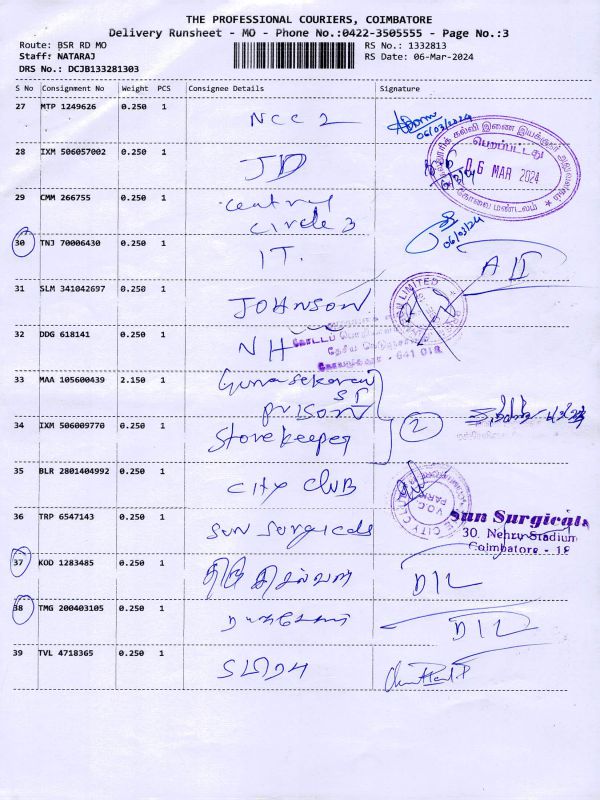 THE PROFESSIONAL COURIERS, COIMBATORE
Delivery Runsheet - MO - Phone No.:0422-3505555 - Page No.:3
Route: BSR RD MO
RS No.: 1332813
Staff: NATARAJ
RS Date: 06-Mar-2024
DRS No.: DCJB133281303
S No Consignment No Weight PCS Consignee Details Signature
27 MTP 1249626 0.250 1 NCC 2
06/03/2024
28 IXM 506057002 0.250 1 JD
பெறப்பட்டது
06 MAR 2024
கோவை மண்டலம்
29 CMM 266755 0.250 1 central
circle 3
06/03/24
30 TNJ 70006430 0.250 1 IT.
31 SLM 341042697 0.250 1 JOHNSON
LIMITED
32 DDG 618141 0.250 1 NH
641 018
33 MAA 105600439 2.150 1 Gunasekaran
ST
prison
2
34 IXM 506009770 0.250 1 Store keeper
35 BLR 2801404992 0.250 1 City Club
CITY CLUB
V.O.C. PARK
36 TRP 6547143 0.250 1 Sun Surgicals
Sun Surgicals
30, Nehru Stadium
Coimbatore - 18
37 KOD 1283485 0.250 1 D/L
38 TMG 200403105 0.250 1 D/L
39 TVL 4718365 0.250 1